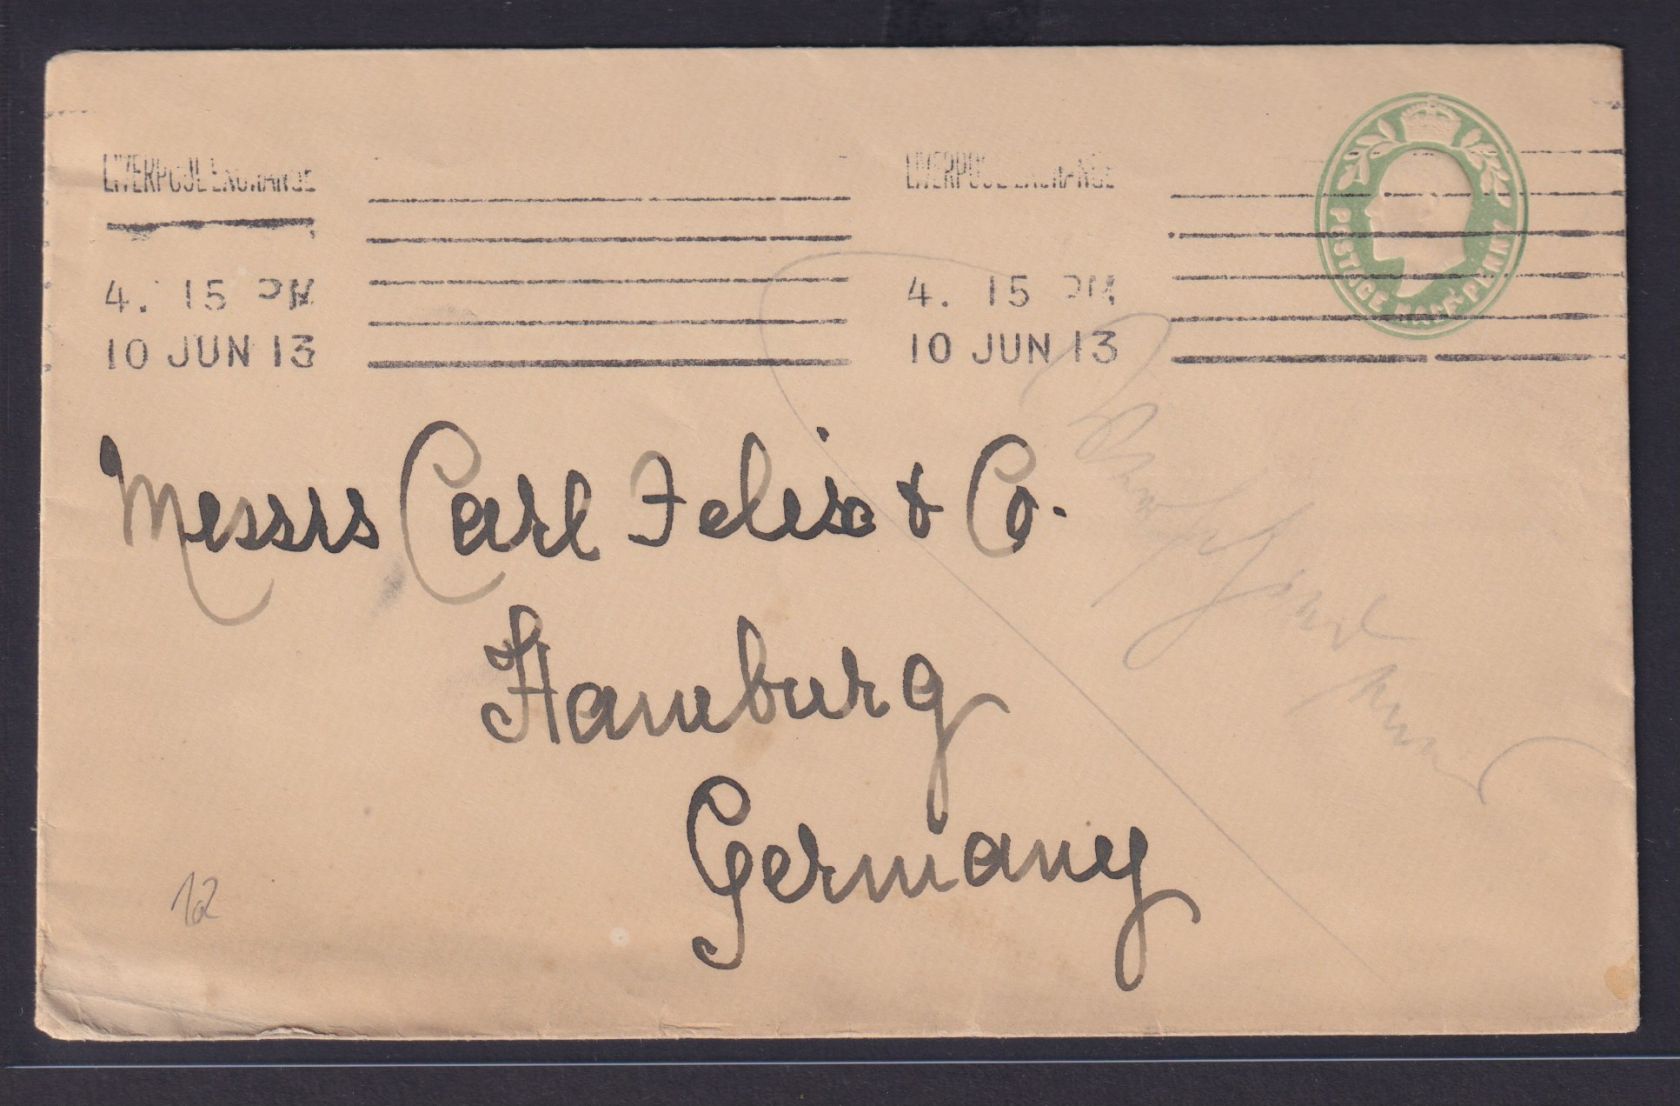 LIVERPOOL EXCHANGE
4. 15 PM
10 JUN 13
LIVERPOOL EXCHANGE
4. 15 PM
10 JUN 13
POSTAGE HALF PENNY
Messrs Carl Felix & Co.
Hamburg
Germany
12